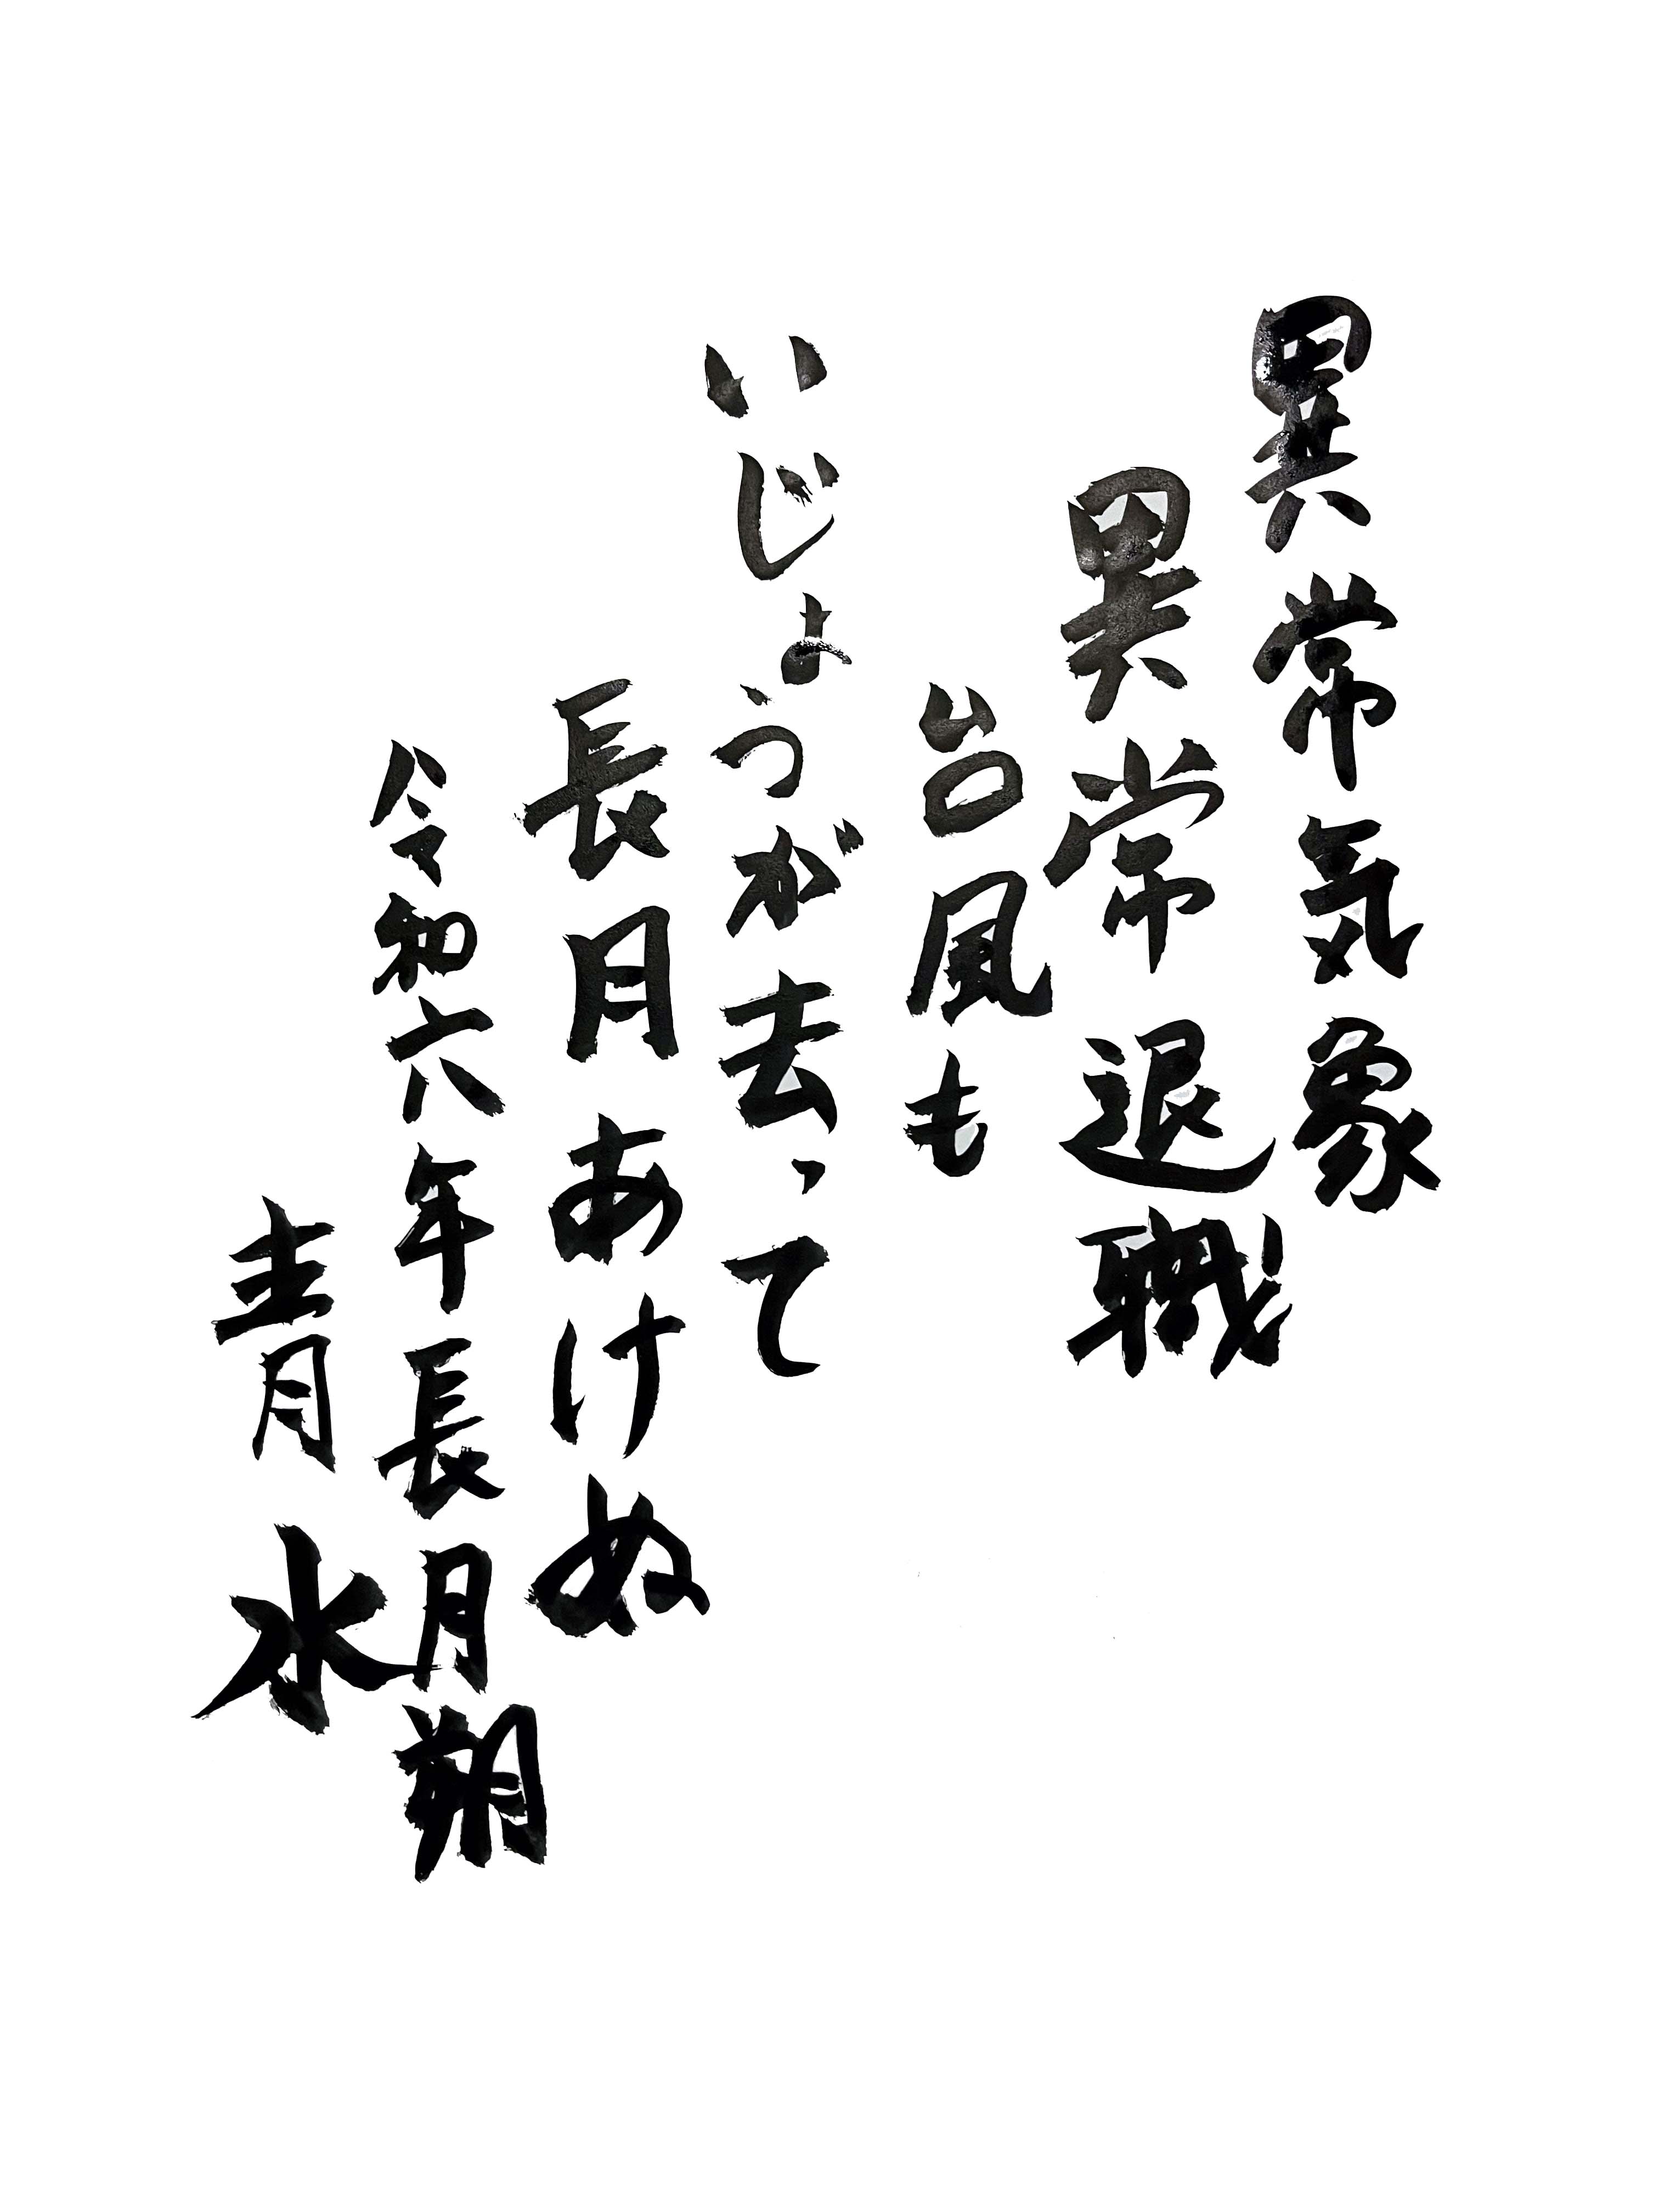 異常気象
異常退職
台風も
いじょうが去って
長月あけぬ
令和六年長月朔
青水